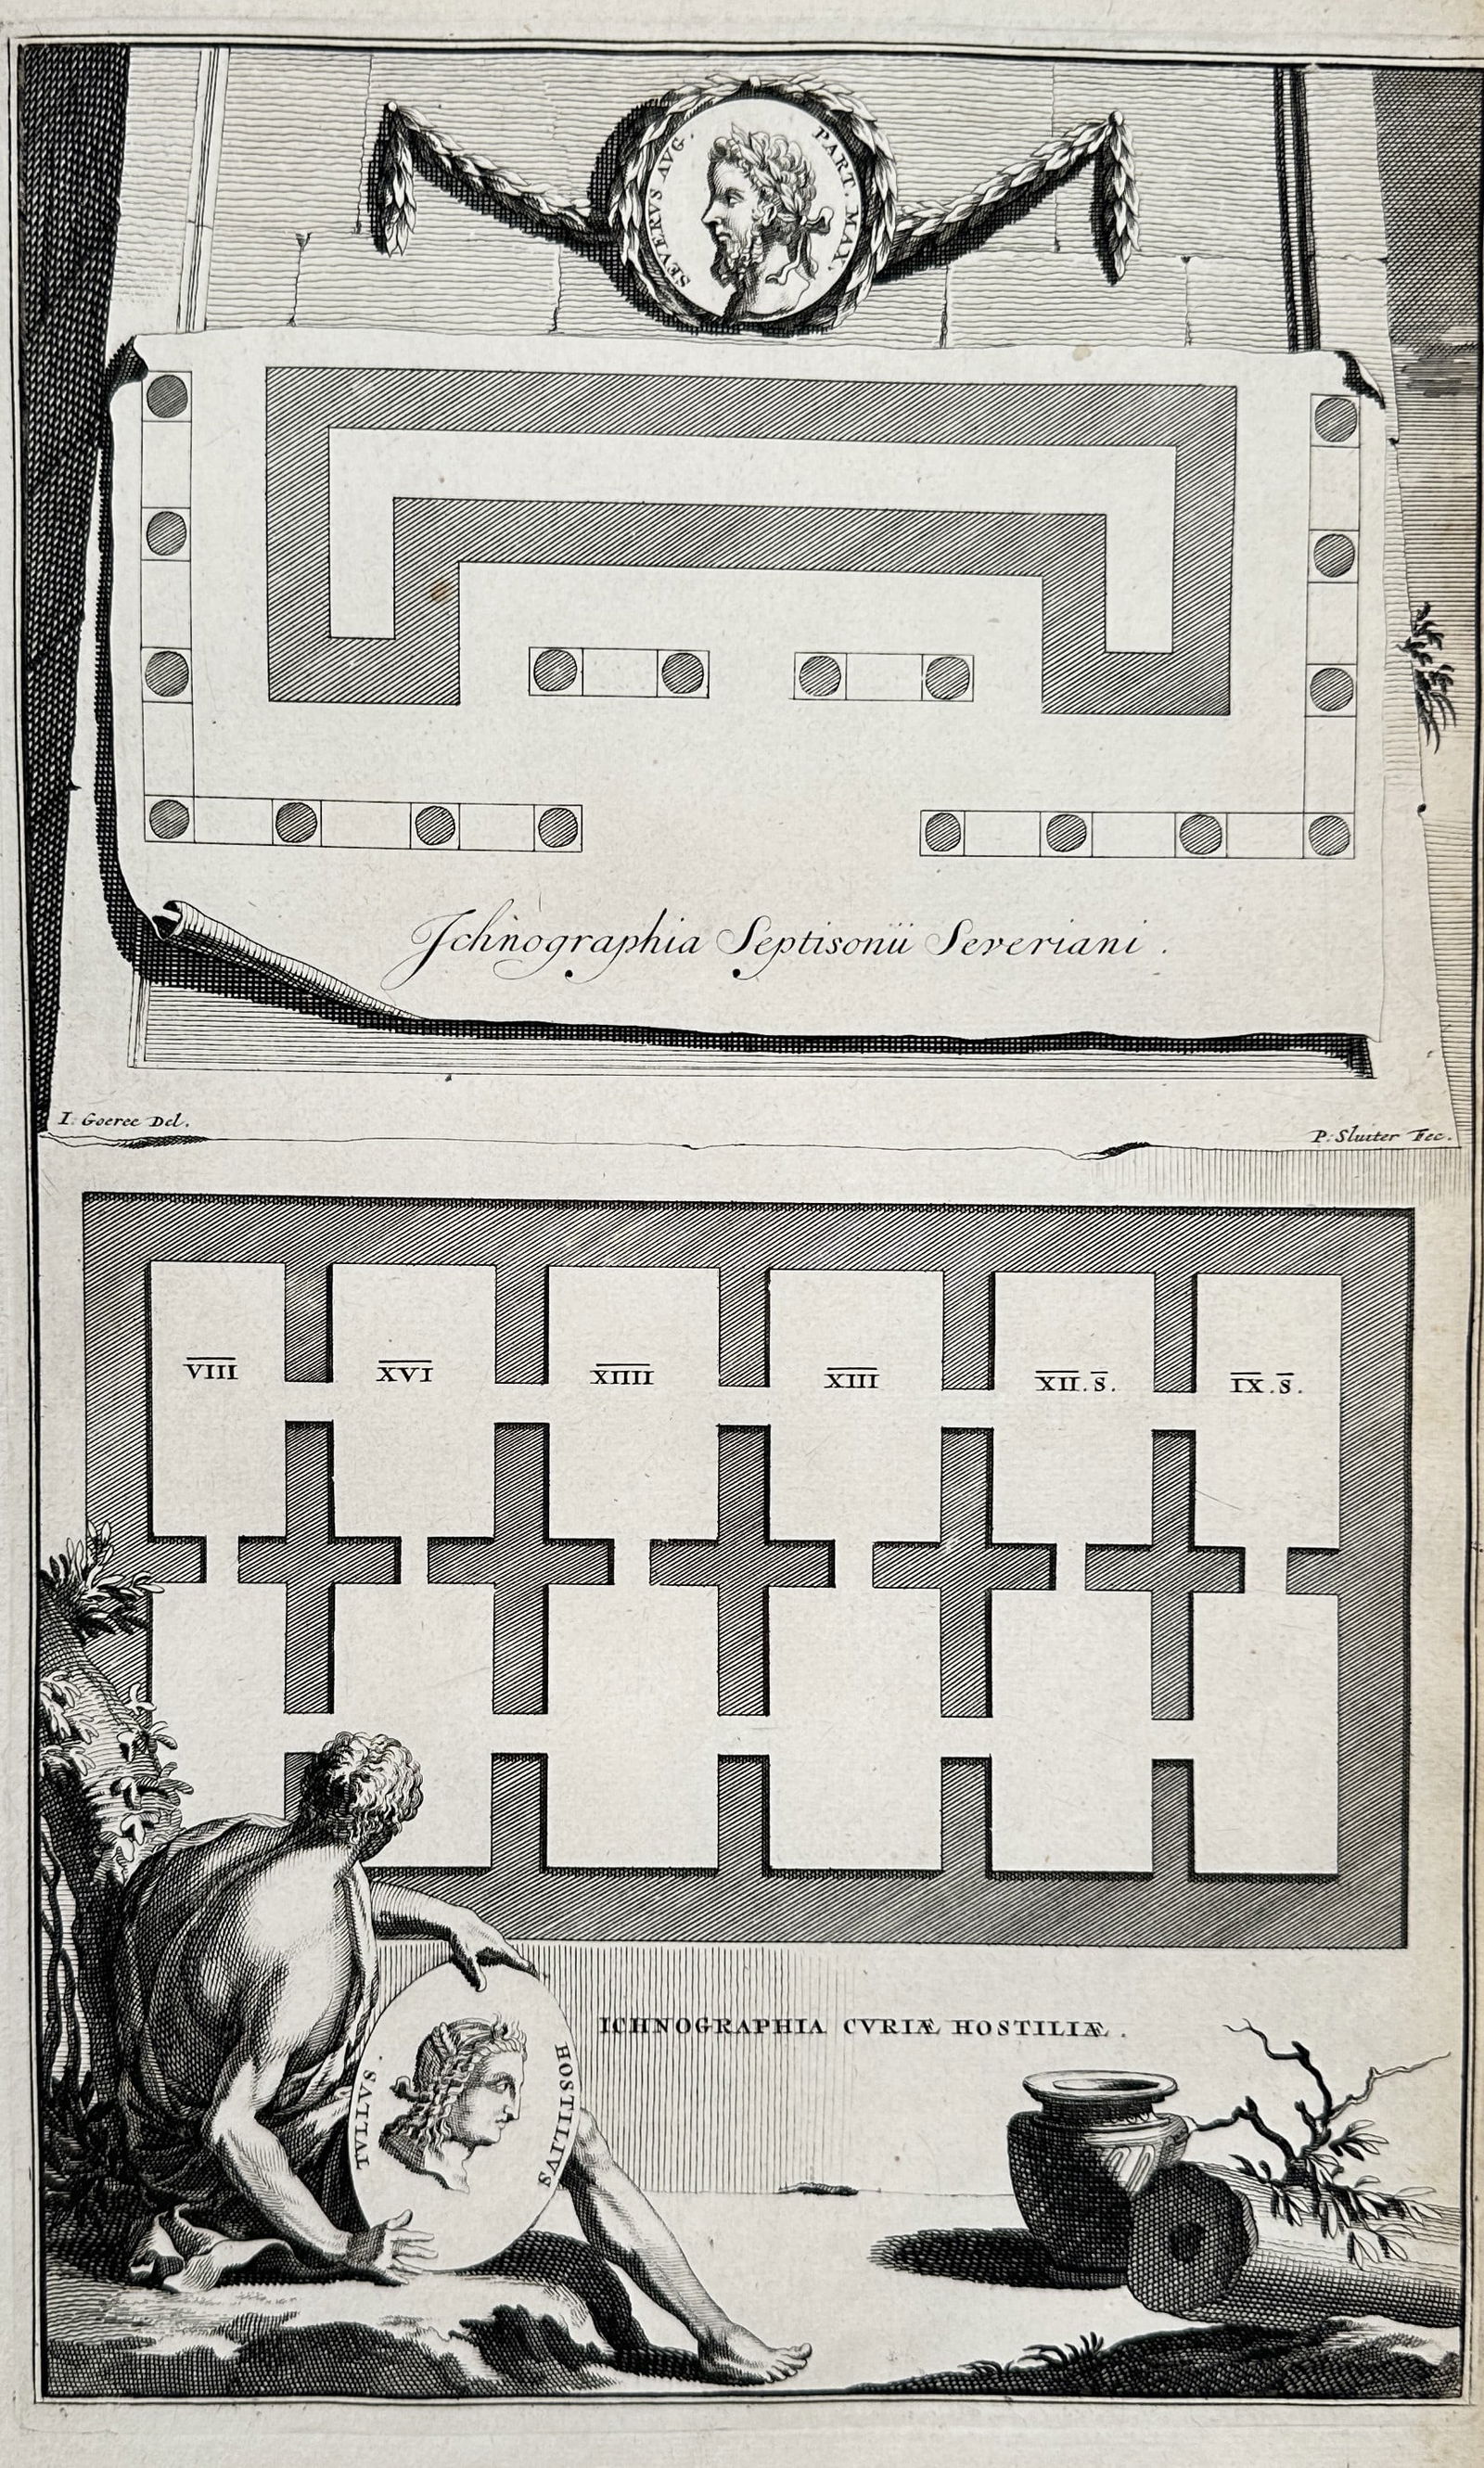 SEVERVS AVG. PART. MAX.
Ichnographia Septisonii Severiani.
I. Goeree Del.
P. Sluiter Fec.
V̅I̅I̅I̅ X̅V̅I̅ X̅I̅I̅I̅I̅ X̅I̅I̅I̅ X̅I̅I̅.S̅. I̅X̅.S̅.
ICHNOGRAPHIA CVRIÆ HOSTILIÆ.
TVLLVS. HOSTILIVS